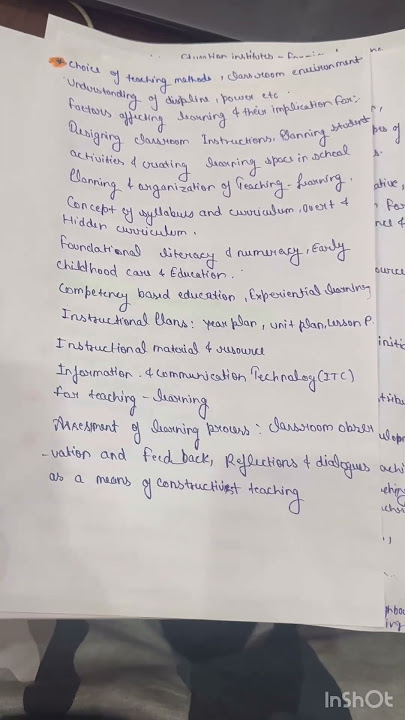 Education institutes -
* Choice of teaching methods, classroom environment
Understanding of displine, power etc
Factors affecting learning & their implication for:
Designing classroom Instructions, Planning student
activities & creating learning spaces in school
Planning & organization of Teaching - Learning.
Concept of syllabus and curriculum, overt &
Hidden curriculum.
Foundational literacy & numeracy, Early
childhood care & Education.
Competency based education, Experiential learning
Instructional Plans: year plan, unit plan, Lesson P.
Instructional material & resource
Information & communication Technology (ITC)
for teaching - learning
Assesment of learning process: classroom obser
-vation and feed back, Reflections & dialogues
as a means of constructivist teaching
InShOt